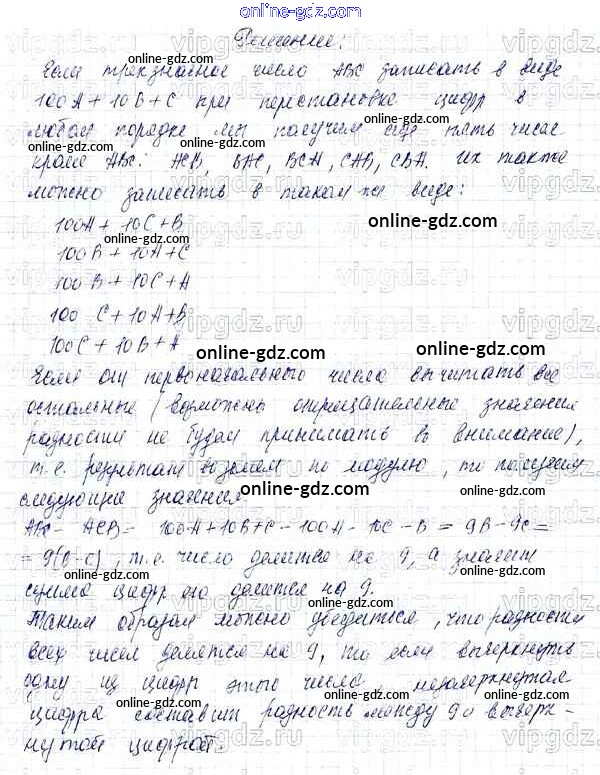 online-gdz.com
Решение:
online-gdz.com
Если трехзначное число ABC записать в виде
100A + 10B + C при перестановке цифр в
online-gdz.com
любом порядке мы получим еще пять чисел
кроме ABC: ACB, BAC, BCA, CAB, CBA. Их также
online-gdz.com
можно записать в таком же виде:
100A + 10C + B
online-gdz.com
online-gdz.com
100B + 10A + C
100B + 10C + A
100 C + 10A + B
100C + 10B + A
online-gdz.com
Если от первоначального числа вычитать все
online-gdz.com
остальные (возможны отрицательные значения
разности не будем принимать во внимание),
т.е. результат возьмем по модулю, то получим
следующие значения
online-gdz.com
ABC - ACB = 100A + 10B + C - 100A - 10C - B = 9B - 9C =
= 9(B - C), т.е. число делится на 9, а значит
online-gdz.com
сумма цифр его делится на 9.
online-gdz.com
Таким образом можно убедиться, что разности
всех чисел делятся на 9, то если вычеркнуть
одну из цифр этого числа, незачеркнутая
online-gdz.com
цифра составит разность между 9 и вычерк-
online-gdz.com
нутой цифрой.
vipgdz.ru